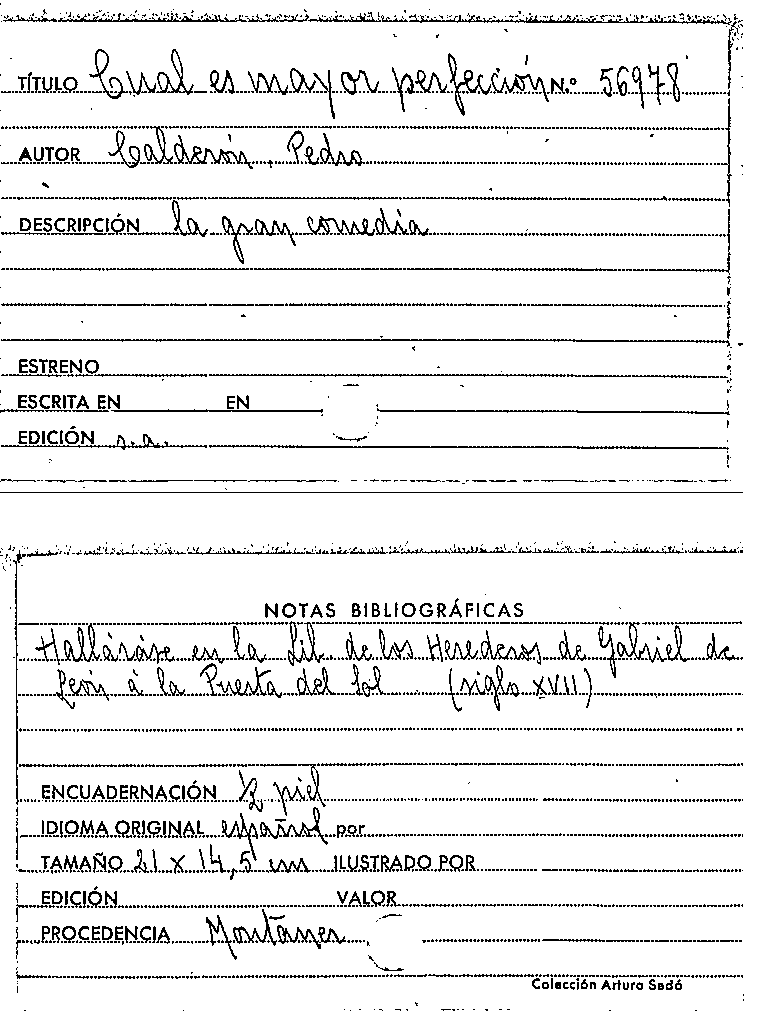 TÍTULO Cual es mayor perfección N.º 56978
AUTOR Calderón, Pedro
DESCRIPCIÓN la gran comedia
ESTRENO
ESCRITA EN EN
EDICIÓN s.a.
NOTAS BIBLIOGRÁFICAS
Hallaráse en la Lib. de los Herederos de Gabriel de
León á la Puerta del Sol (siglo XVII)
ENCUADERNACIÓN ½ piel
IDIOMA ORIGINAL español por
TAMAÑO 21 x 14,5 cm ILUSTRADO POR
EDICIÓN VALOR
PROCEDENCIA Montaner
Colección Arturo Sedó